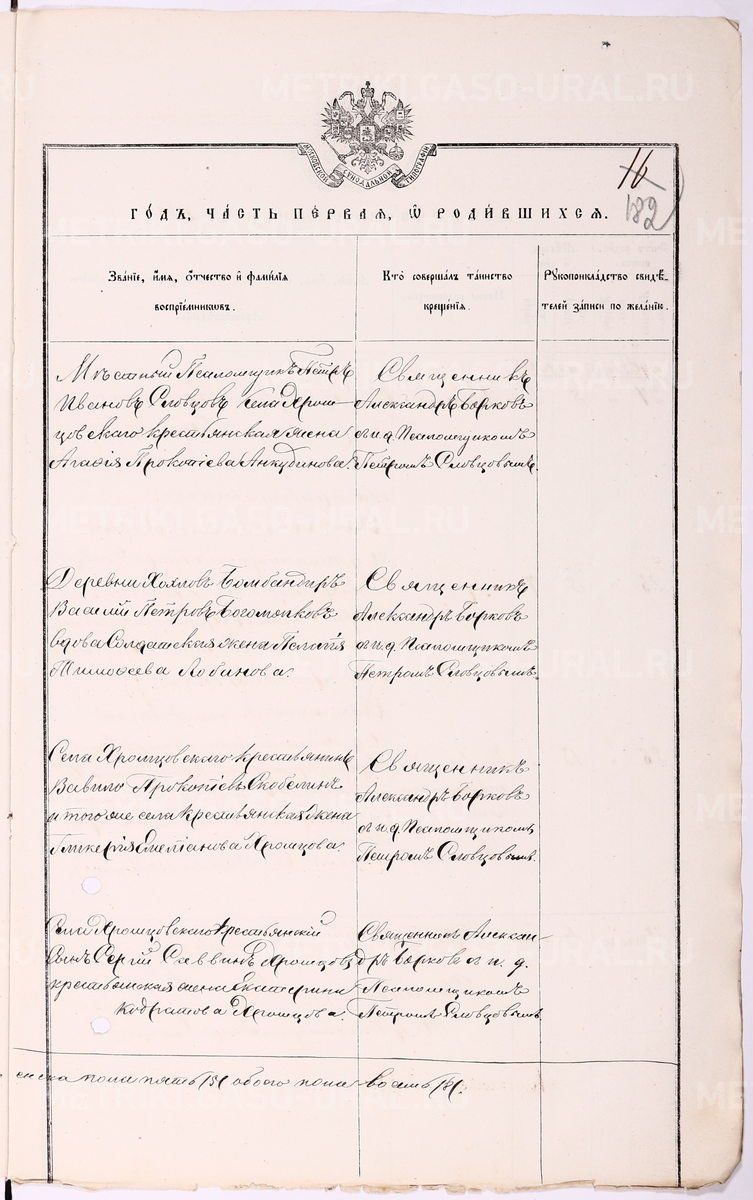 METRIKI.GASO-URAL.RU
МОСКОВСКОЙ СѴНОДАЛЬНОЙ ТИПОГРАФІИ
16
182
ГО́ДЪ, ЧА́СТЬ ПЕ́РВАЯ, Ѡ҆ РОДИ́ВШИХСЯ.
Зва́нїе, и҆́мя, ѻ҆́тчество и҆ фами́лїя
воспрїе́мниковъ.
Кто̀ соверша́лъ та́инство
креще́нїя.
Рꙋкоприкла́дство свидѣ́-
телей за́писи по жела́нїю.
Мѣстный Псаломщикъ Петръ
Ивановъ Словцовъ села Хром-
цовскаго крестьянская жена
Агафія Прокопіева Анкудинова.
Священникъ
Александръ Борковъ
съ и. д. Псаломщикомъ
Петромъ Словцовымъ.
Деревни Хохловъ Бомбандиръ
Василій Петровъ Богомолковъ
вдова Солдатская жена Пелагія
Тимофеева Лобанова.
Священникъ
Александръ Борковъ
съ и. д. Псаломщикомъ
Петромъ Словцовымъ.
Села Хромцовскаго крестьянинъ
Вавило Прокопіевъ Скобелинъ
и того же села крестьянская жена
Гликерія Емеліанова Хромцова.
Священникъ
Александръ Борковъ
съ и. д. Псаломщикомъ
Петромъ Словцовымъ.
Села Хромцовскаго крестьянскій
сынъ Сергій Саввинъ Хромцовъ
крестьянская жена Екатерина
Кодратова Хромцова.
Священникъ Алексан-
дръ Борковъ съ и. д.
Псаломщикомъ
Петромъ Словцовымъ.
женска пола пять /5/ обоего пола восемь /8/.